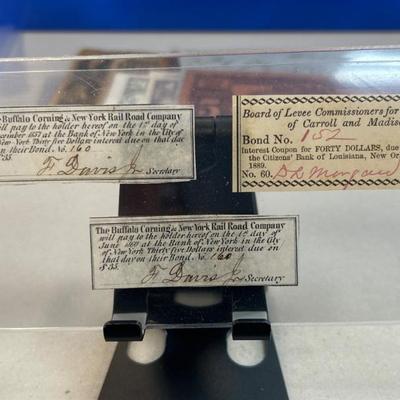 The Buffalo Corning & New York Rail Road Company
will pay to the holder hereof on the 1st day of
December 1857 at the Bank of New York in the City of
New York Thirty five Dollars interest due on that day
on their Bond. No. 160
$35.
F. Davis Jr.
Secretary
Board of Levee Commissioners for
of Carroll and Madis
Bond No. 152
Interest Coupon for FORTY DOLLARS, due
the Citizens' Bank of Louisiana, New Or
1889.
No. 60.
The Buffalo Corning & New York Rail Road Company
will pay to the holder hereof on the 1st day of
June at the Bank of New York in the City
of New York Thirty five Dollars interest due on
that day on their Bond. No. 160
$35.
F. Davis Jr.
Secretary